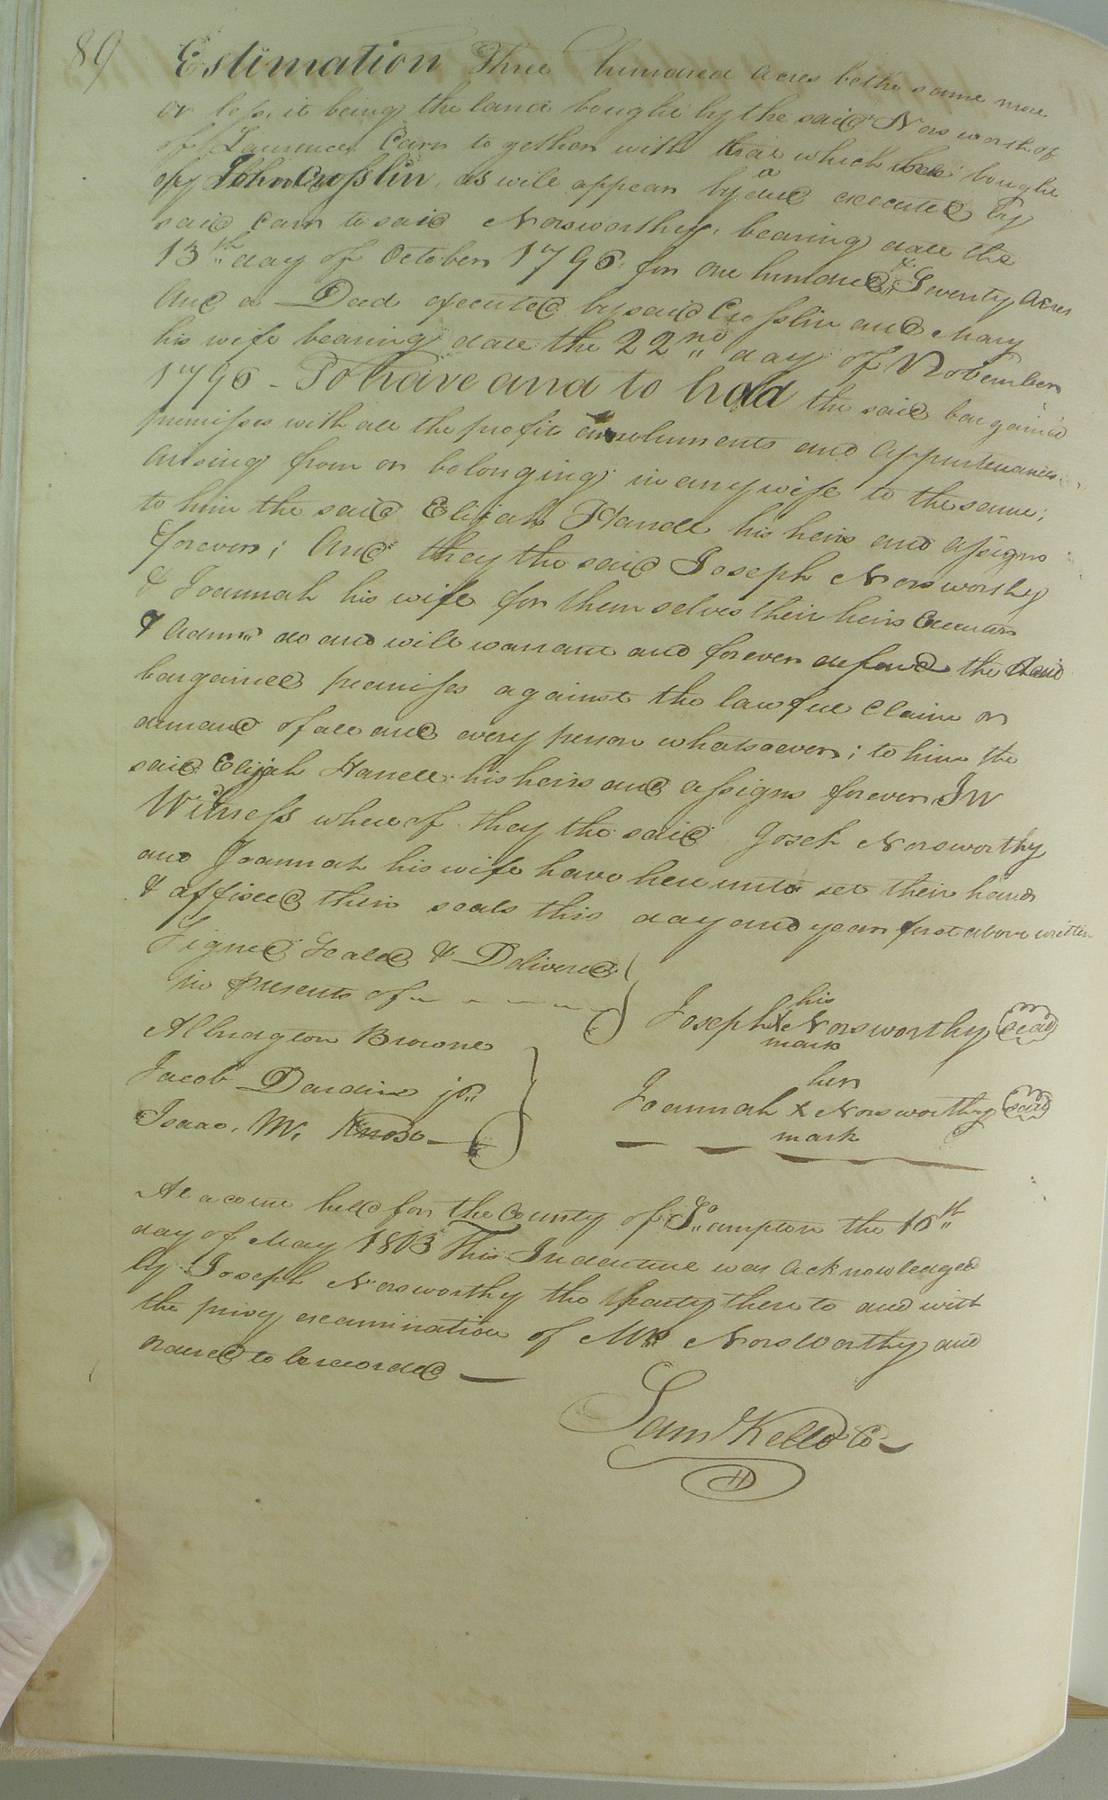 89
Estimation Three hundred acres be the same more
or less, it being the land bought by the said Norsworthy of
of Laurence Carn together with that which was bought
of John Crosslin, as will appear by a deed executed by
said Carn to said Norsworthy, bearing date the
13th day of October 1796, for one hundred & Seventy Acres
And a Deed executed by said Crosslin and Mary
his wife bearing date the 22nd day of November
1796 - To have and to hold the said bargained
premisses with all the profits emoluments and Appurtenances
Arising from or belonging in any wise to the same;
to him the said Elijah Harrell his heirs and assigns
forever; And they the said Joseph Norsworthy
& Joannah his wife for themselves their heirs Executors
& Admrs do and will warrant and forever defend the said
bargained premisses against the lawfull Claim or
demand of all and every person whatsoever; to him the
said Elijah Harrell his heirs and assigns forever In
Witness whereof they the said Joseh Norsworthy
and Joannah his wife have hereunto set their hands
& affixed their seals this day and year first above written
Signed Sealed & Delivered
in presents of
his
Joseph X Norsworthy seal
mark
Albridgton Browne
Jacob Dardin jr.
her
Joannah X Norsworthy seal
mark
Isaac. W.
At a court held for the County of So. ampton the 16th
day of May 1803 This Indenture was Acknowledged
by Joseph Norsworthy the party thereto and with
the privy examination of Mrs Norsworthy and
ordered to be recorded
Saml Kello Co